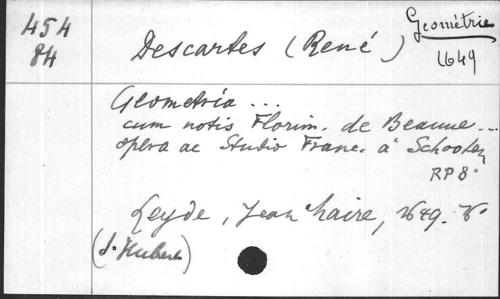 454
84
Descartes (René)
Géométrie
1649
Geometria ...
cum notis Florim. de Beaune ...
opera ac studio Franc. à Schooten
RP 8°
Leyde, Jean Maire, 1649.
(S. Hubert)